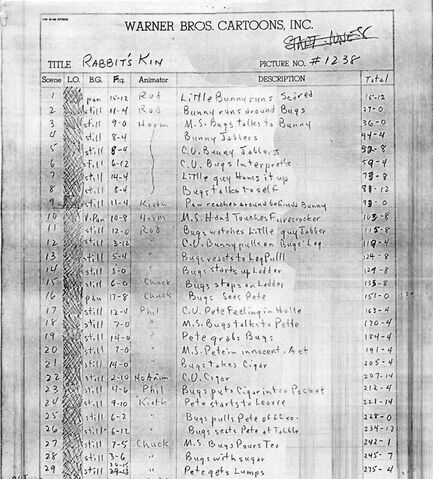 WARNER BROS. CARTOONS, INC.
START JUNE 5
TITLE RABBIT'S KIN PICTURE NO. #1238
Scene L.O. B.G. Ftg. Animator DESCRIPTION Total
1 pan 15-12 Rod Little Bunny runs Scired 15-12
2 still 11-4 Rod Bunny runs around Bugs 27-0
3 still 9-0 Norm M.S. Bugs talks to Bunny 36-0
4 still 8-4 Bunny Jabbers 44-4
5 still 8-4 C.U. Bunny Jabbers 52-8
6 still 6-12 C.U. Bugs Interprets 59-4
7 still 14-4 Little guy Hams it up 73-8
8 still 8-4 " Bugs talks to self
9 still Kieth Paw reaches around behind Bunny
10 V. Pan 10-8 Norm M.S. Hand Touches Firecracker 103-8
11 still 12-0 Rod Bugs watches Little guy Jabber 115-8
12 still 3-12 " C.U. Bunny pulls on Bugs' Leg 119-4
13 still 5-4 " Bugs reacts to Leg Pull 124-8
14 still " Bugs starts up Ladder
15 still 6-4 Chuck Bugs stops on Ladder
16 pan 17-8 Chuck Bugs Sees Pete 151-0
17 still 12-4 Phil C.U. Pete Feeling in Hole 163-4
18 still 7-0 " M.S. Bugs talks to Pette 170-4
19 still 14-0 " Pete grabs Bugs 184-4
20 still 7-0 " M.S. Pete in innocent Act 191-4
21 still 14-0 " Bugs takes Cigar 205-4
22 still 2-10 No Anim C.U. Cigar 207-14
23 still Phil Bugs puts Cigar into Pocket 212-4
24 still 9-10 Kieth Pete starts to Leave 221-14
25 still 6-2 " Bugs pulls Pete 228-0
26 still 6-12 " Bugs seats Pete at Table 234-12
27 still 7-5 Chuck M.S. Bugs Pours Tea 242-1
28 still 3-6 " Bugs with sugar 245-7
29 still " Pete gets Lumps 275-4